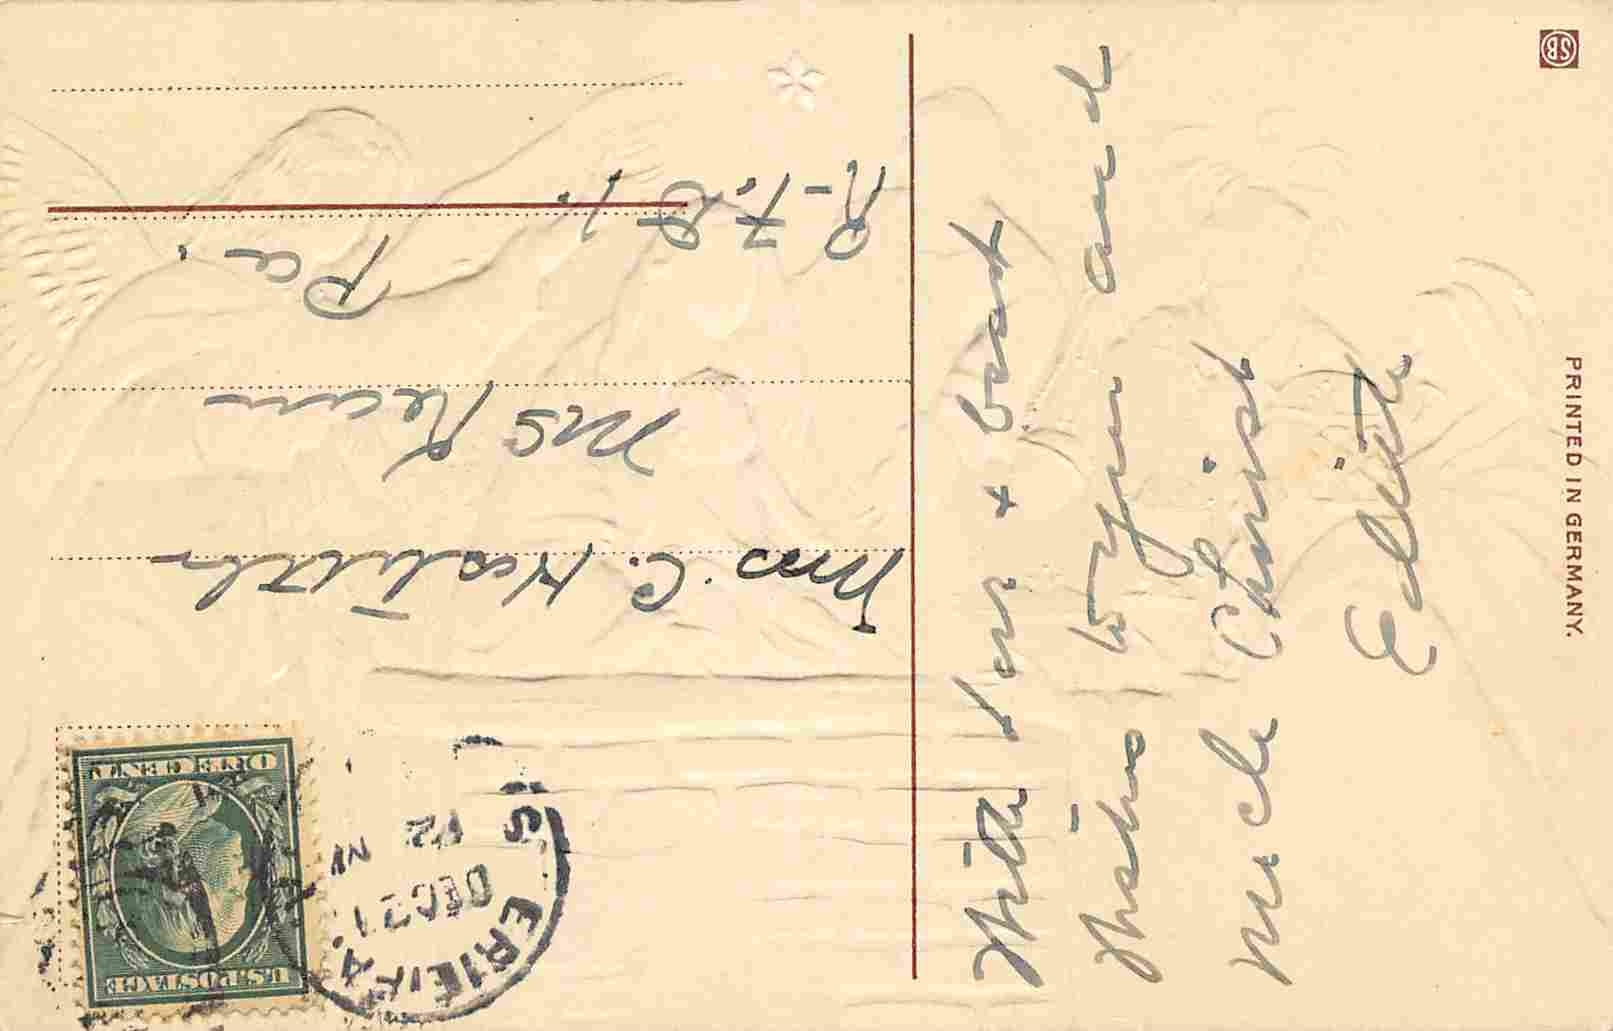 With love & best
wishes to you and
Uncle Christ
Edith
Mrs C.
Mc Kean
R.F.D. 1.
Pa.
U.S. POSTAGE
ONE CENT
ERIE, PA.
DEC 21
M
12
PRINTED IN GERMANY.
SB